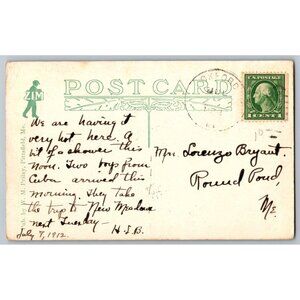 ZIM
POST CARD
U.S. POSTAGE
1 CENT 1
We are having it
very hot here. A
bit of a shower this
Noon. Two boys from
Cuba arrived this
morning. They take
the trip to New Meadows
next Tuesday-
July 9, 1912. H.S.B.
Mr. Lorenzo Bryant.
Round Pond,
Me
Pub. by W. M. Pushy, Pittsfield, Me.